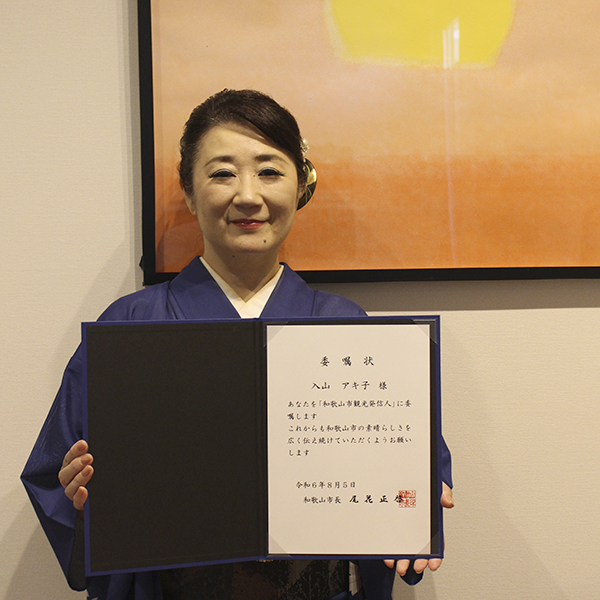 委嘱状
入山 アキ子 様
あなたを「和歌山市観光発信人」に委
嘱します
これからも和歌山市の素晴らしさを
広く伝え続けていただくようお願い
します
令和6年8月5日
和歌山市長 尾花正啓